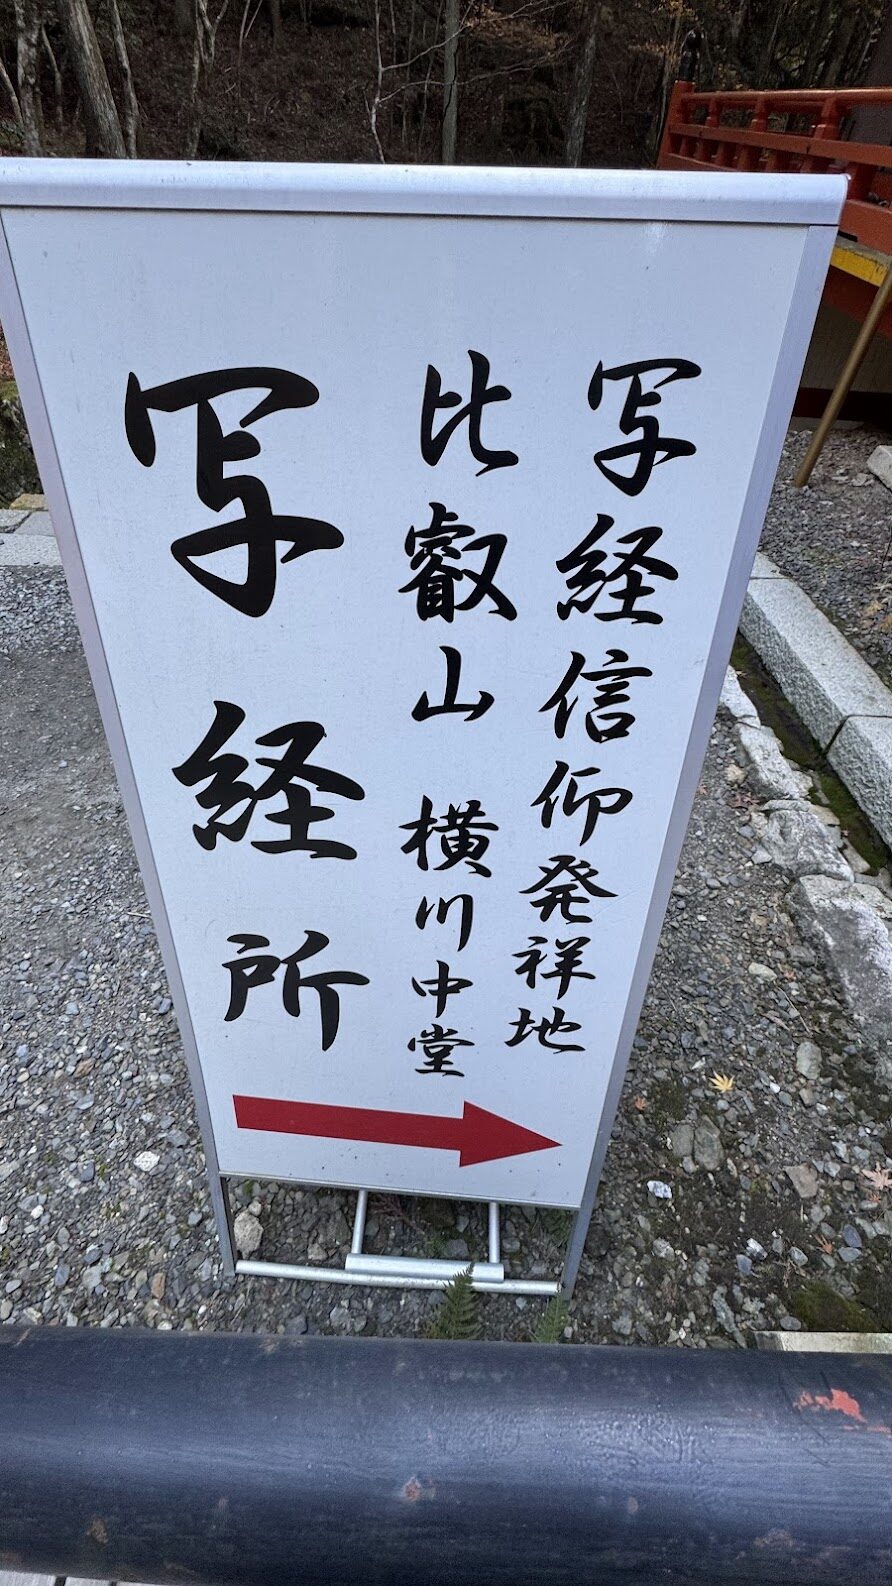 写経信仰発祥地
比叡山 横川中堂
写経所